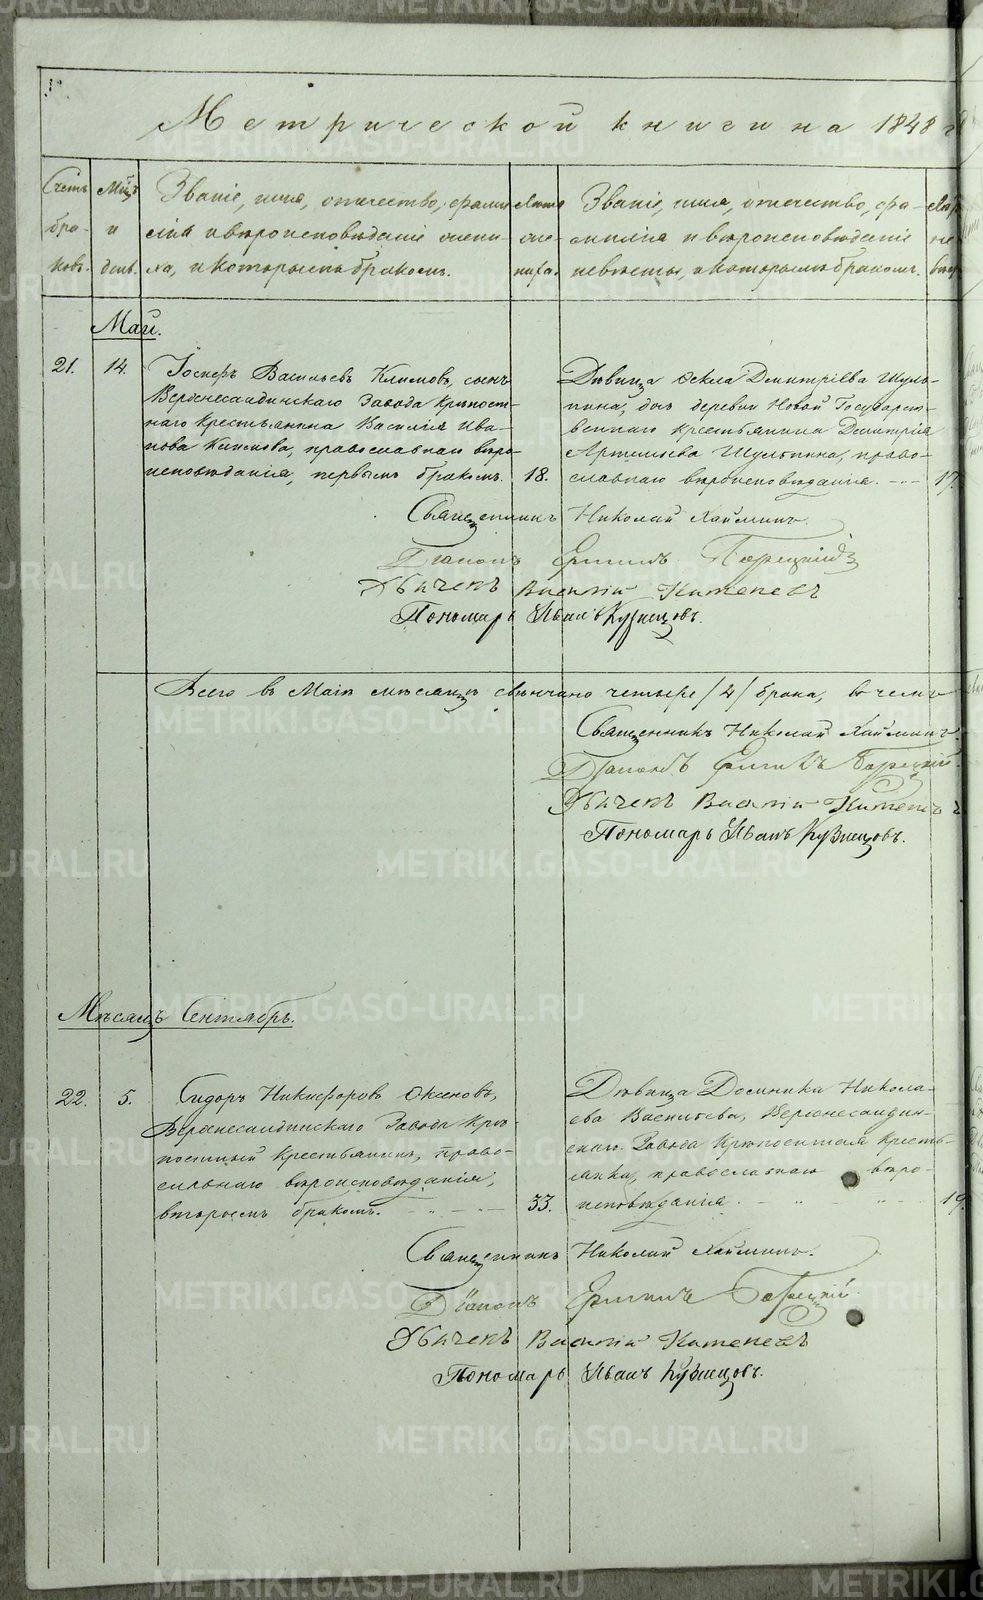 Метрической книги на 1848 г
Счетъ
бра-
ковъ.
Мцъ
и
день.
Званіе, имя, отчество, фами-
лія и вѣроисповѣданіе жени-
ха, и которымъ бракомъ.
Лѣта
же-
ниха.
Званіе, имя, отчество, фа-
милія и вѣроисповѣданіе
невѣсты, и которымъ бракомъ.
Май.
21. 14.
Іосифъ Васильевъ Климовъ, сынъ
Верхнесалдинскаго Завода Крѣпост-
наго Крестьянина Василія Ива-
нова Климова, православнаго вѣро-
исповѣданія, первымъ бракомъ. 18.
Дѣвица Ѳекла Дмитріева Шуль-
гина, дочь деревни Новой Государст-
веннаго крестьянина Дмитрія
Артемьева Шульгина, право-
славнаго вѣроисповѣданія. 17.
Священникъ Николай
Діаконъ
Дьячекъ Василій
Пономарь Иванъ Кузнецовъ.
Всего въ Маіѣ мѣсяцѣ свѣнчано четыре /4/ брака, въ чемъ
Священникъ Николай
Діаконъ
Дьячекъ Василій
Пономарь Иванъ Кузнецовъ.
Мѣсяцъ Сентябрь.
22. 5.
Сидоръ Никифоровъ Оксеновъ,
Верхнесалдинскаго Завода Крѣ-
постный Крестьянинъ, право-
славнаго вѣроисповѣданія,
вторымъ бракомъ. 33.
Дѣвица Домника Никола-
ева Верхнесалдин-
скаго Завода Крѣпостная Кресть-
янка, православнаго вѣро-
исповѣданія 19.
Священникъ Николай
Діаконъ
Дьячекъ Василій
Пономарь Иванъ Кузнецовъ.
METRIKI.GASO-URAL.RU